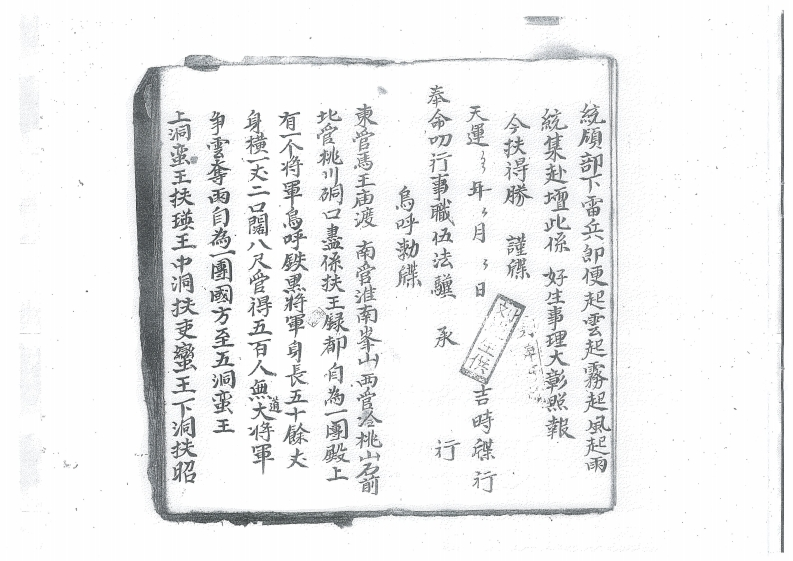 統領部下雷兵即便起雲起霧起風起雨
統集赴壇此係 好生事理大彰照報
今扶得勝 謹牒
天運 年 月 日 吉時牒行
奉命叨行事職伍法驢 承 行
烏呼勅牒
東管馬王庙渡 南管淮南峯山 西管冷桃山石前
北管桃川硐口盡係扶王録都自為一團殿上
有一个将軍烏呼鉄黑将軍身長五十餘丈
身横一丈二口闊八尺管得五百人無道大将軍
争雲奪雨自為一團國方至五洞蛮王
上洞蛮王扶瑛王中洞扶吏蠻王下洞扶昭